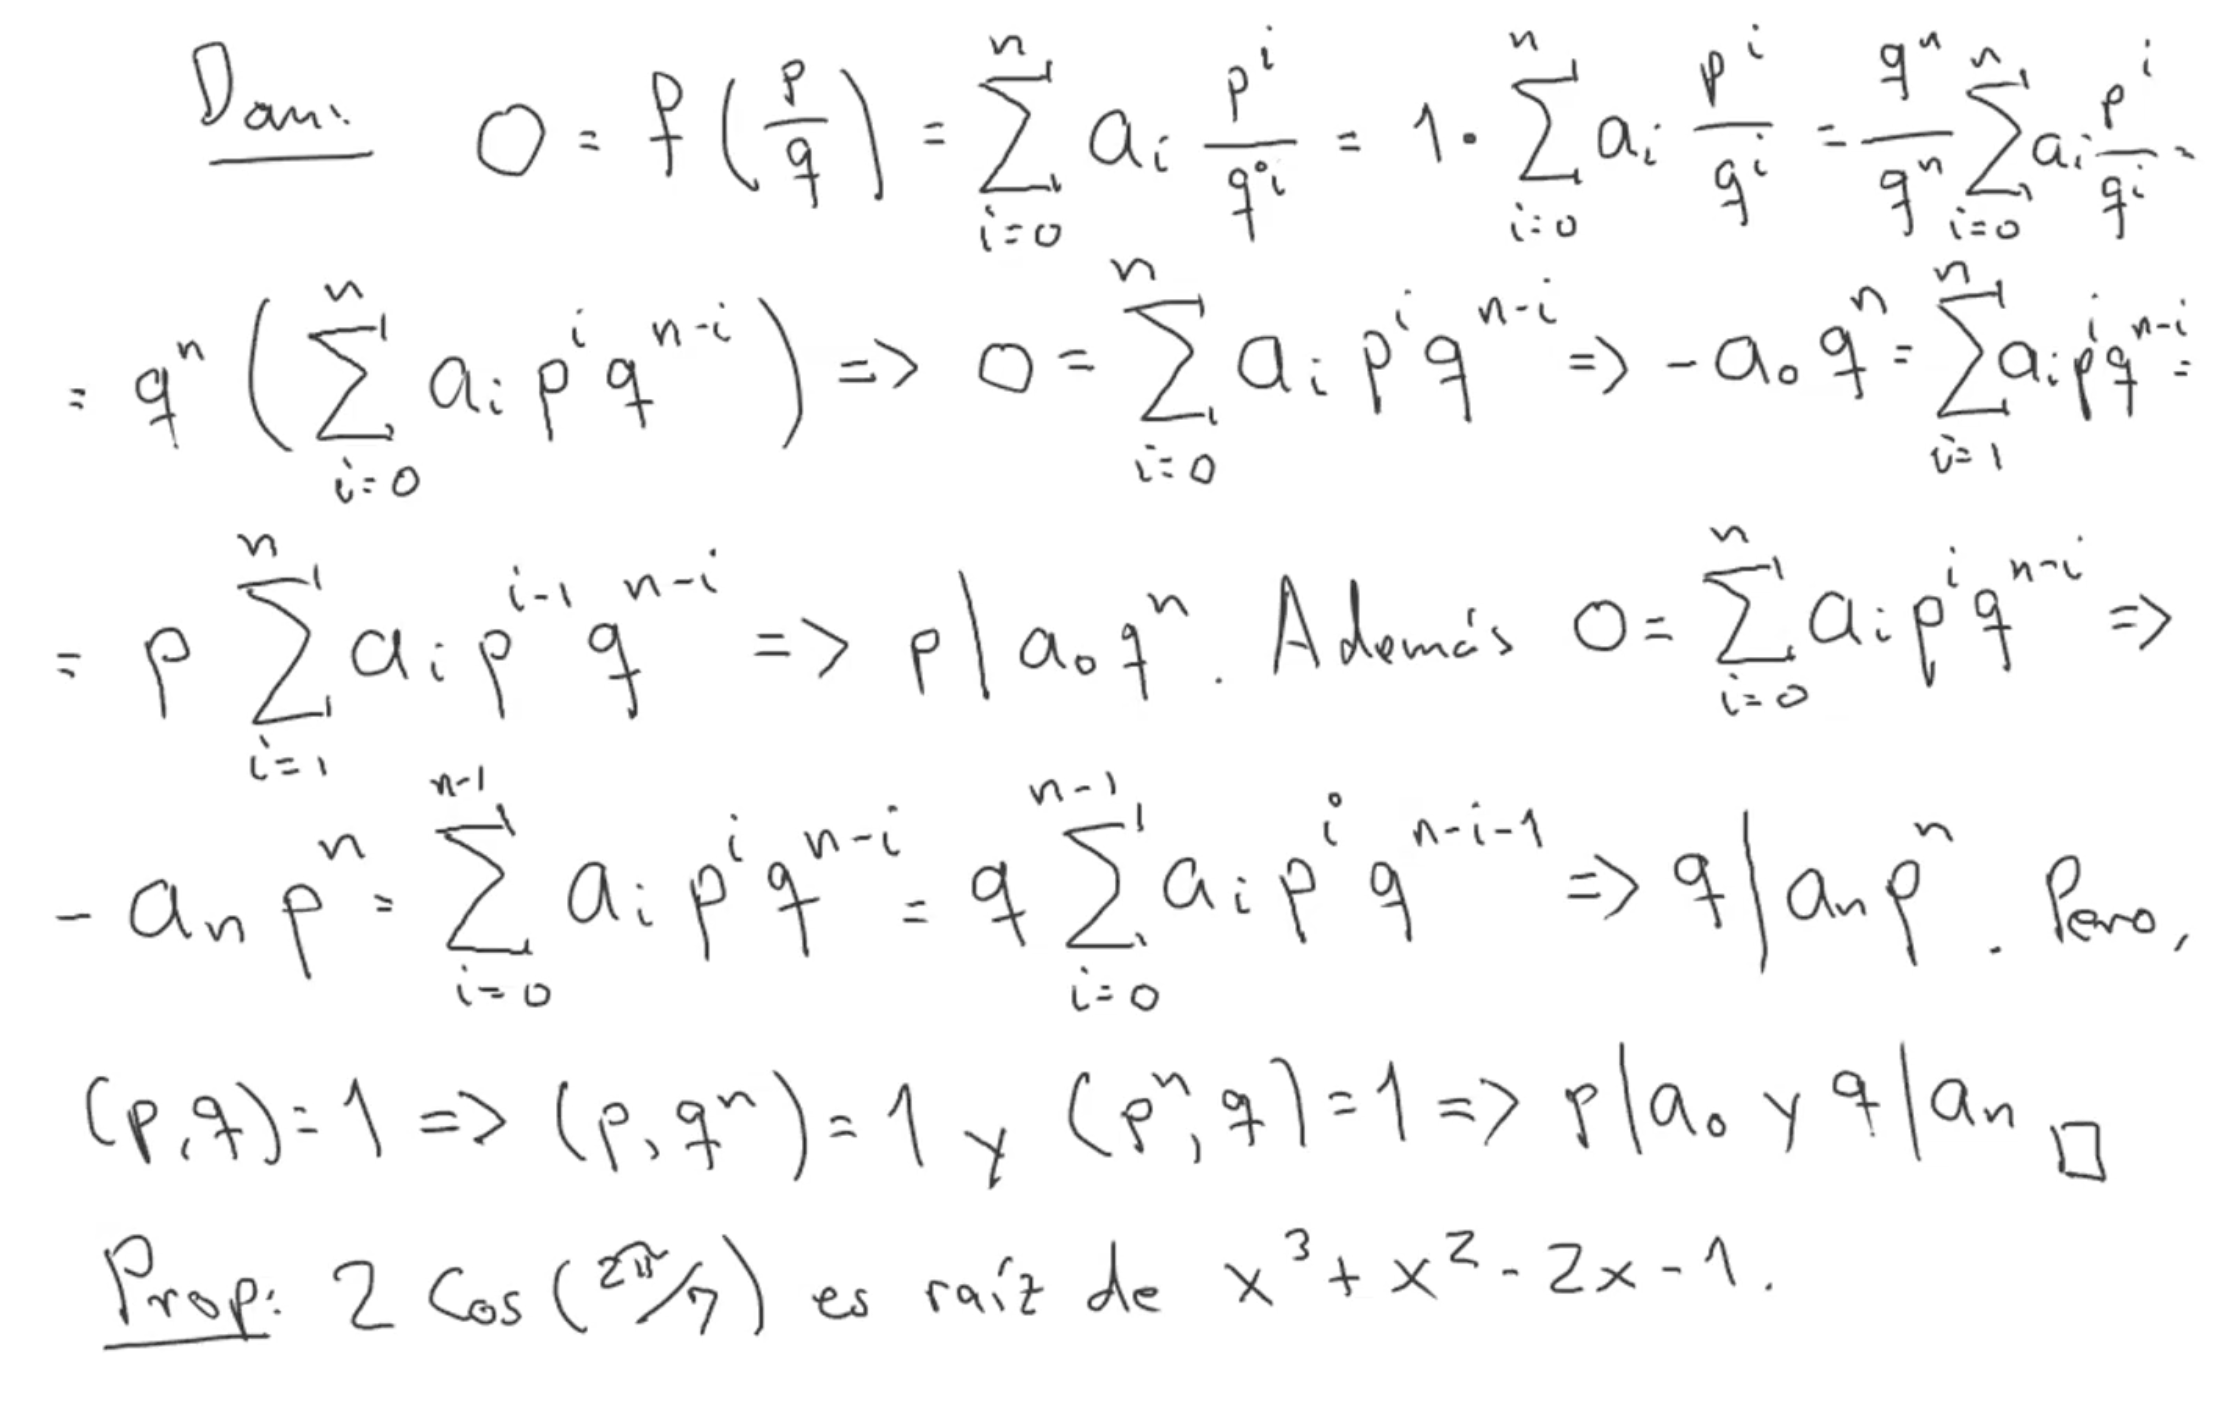 Dem: 0 = f(p/q) = ∑_{i=0}^{n} a_i p^i/q^i = 1·∑_{i=0}^{n} a_i p^i/q^i = q^n/q^n ∑_{i=0}^{n} a_i p^i/q^i =
= q^n (∑_{i=0}^{n} a_i p^i q^{n-i}) => 0 = ∑_{i=0}^{n} a_i p^i q^{n-i} => -a_0 q^n = ∑_{i=1}^{n} a_i p^i q^{n-i} =
= p ∑_{i=1}^{n} a_i p^{i-1} q^{n-i} => p | a_0 q^n. Además 0 = ∑_{i=0}^{n} a_i p^i q^{n-i} =>
-a_n p^n = ∑_{i=0}^{n-1} a_i p^i q^{n-i} = q ∑_{i=0}^{n-1} a_i p^i q^{n-i-1} => q | a_n p^n. Pero,
(p,q)=1 => (p,q^n)=1 y (p^n,q)=1 => p|a_0 y q|a_n □
Prop: 2 Cos(2π/7) es raíz de x^3 + x^2 - 2x - 1.